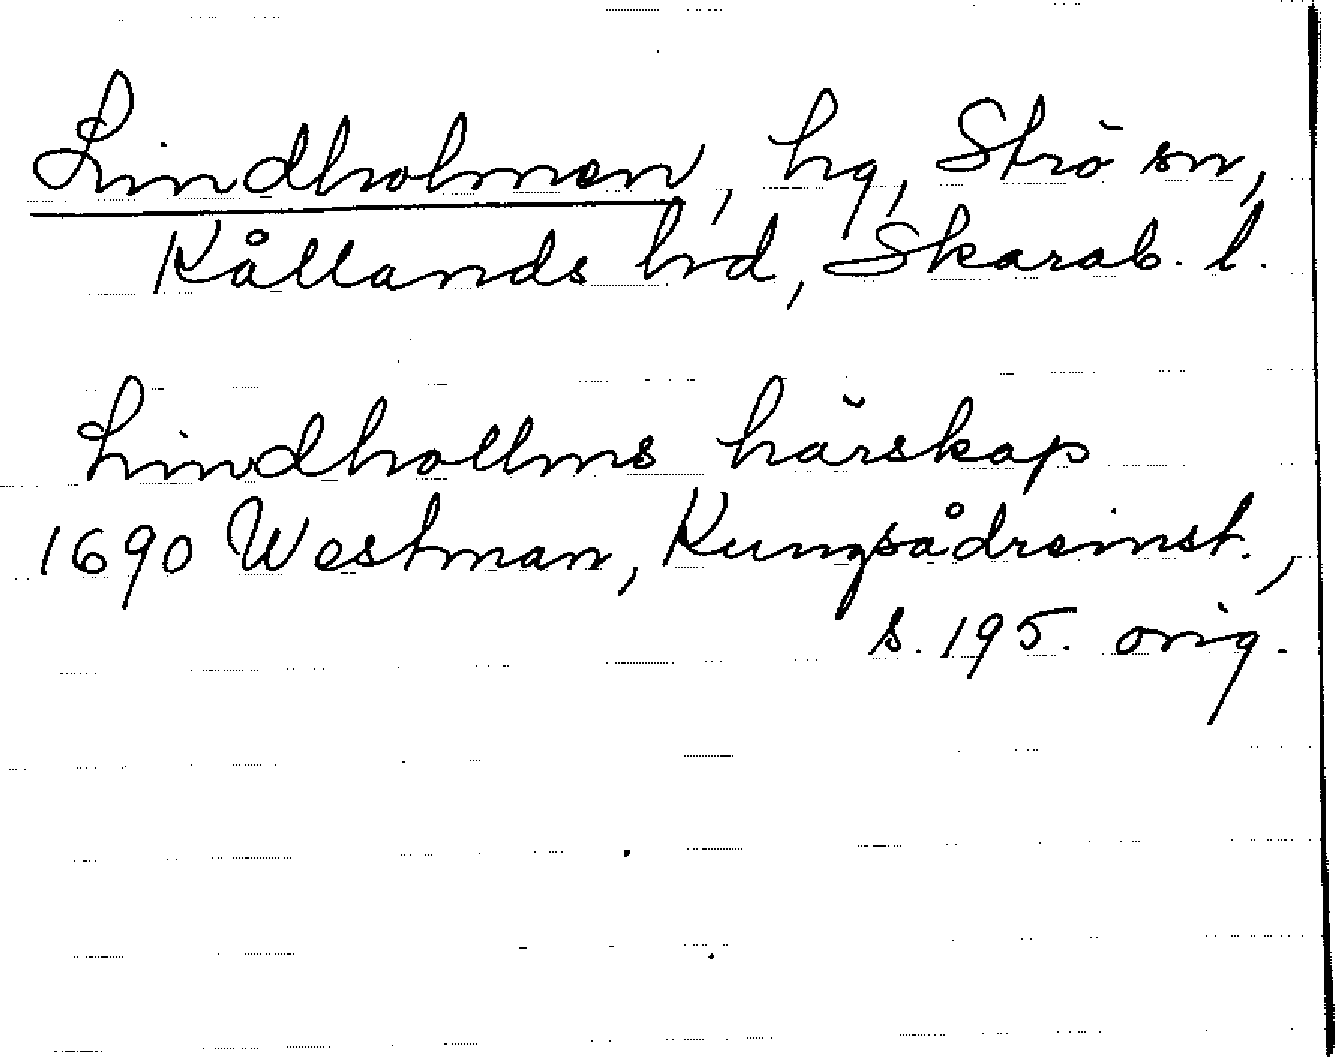 Lindholmen, hg, Strö sn,
Kållands hd, Skarab. l.
Lindhollms härskap
1690 Westman, Kungsådreinst.,
s. 195. orig.